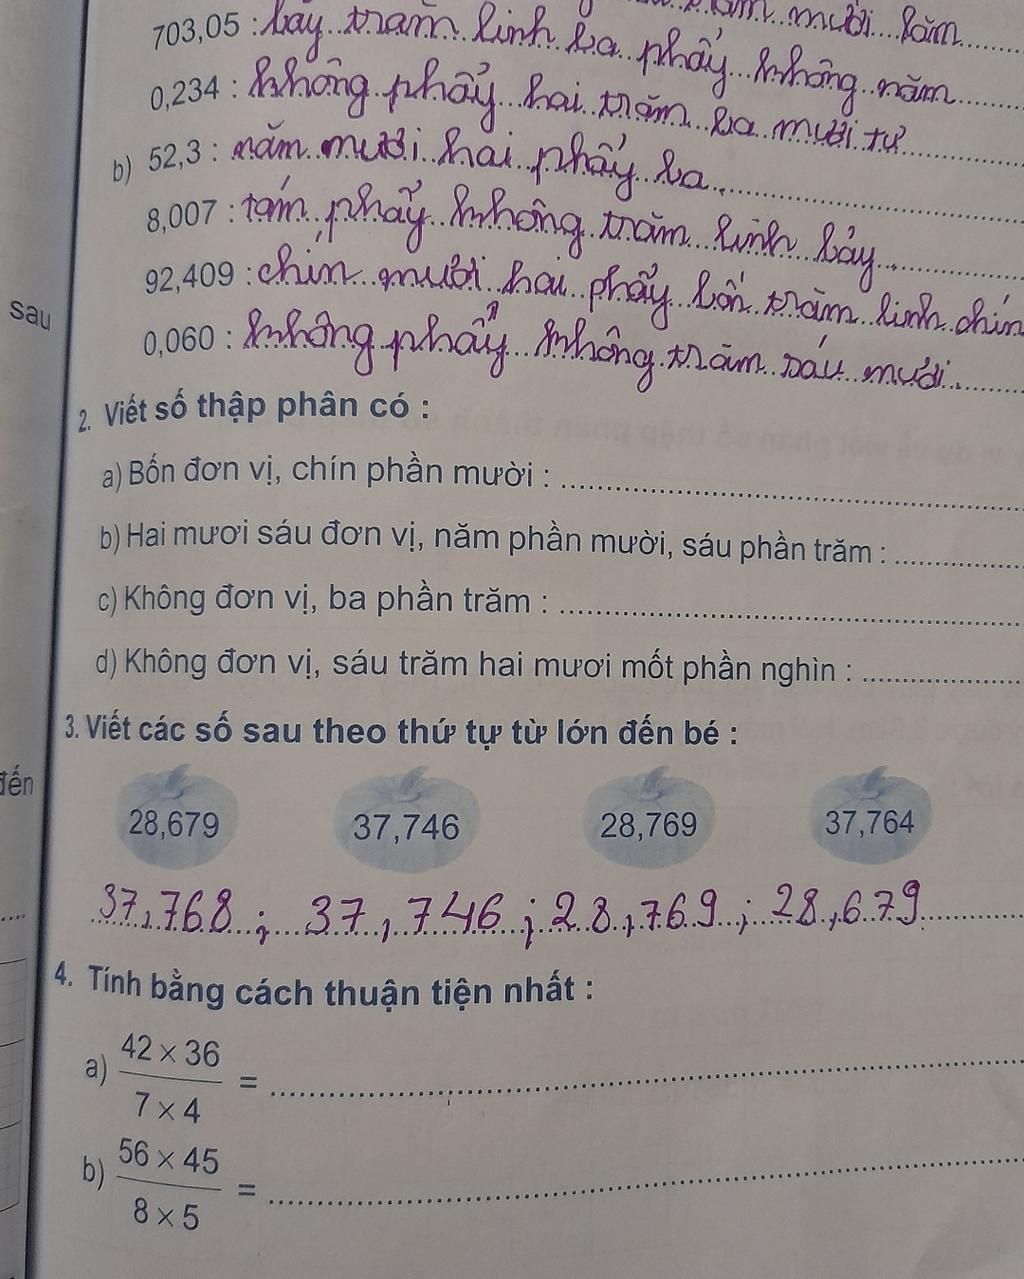 mười lăm
703,05 : bảy trăm linh ba phẩy không năm
0,234 : không phẩy hai trăm ba mươi tư
b) 52,3 : năm mươi hai phẩy ba
8,007 : tám phẩy không trăm linh bảy
92,409 : chín mươi hai phẩy bốn trăm linh chín
sau
0,060 : không phẩy không trăm sáu mươi
2. Viết số thập phân có :
a) Bốn đơn vị, chín phần mười :
b) Hai mươi sáu đơn vị, năm phần mười, sáu phần trăm :
c) Không đơn vị, ba phần trăm :
d) Không đơn vị, sáu trăm hai mươi mốt phần nghìn :
3. Viết các số sau theo thứ tự từ lớn đến bé :
đến
28,679 37,746 28,769 37,764
37,768 ; 37,746 ; 28,769 ; 28,679
4. Tính bằng cách thuận tiện nhất :
a) 42 × 36
=
7 × 4
b) 56 × 45
=
8 × 5